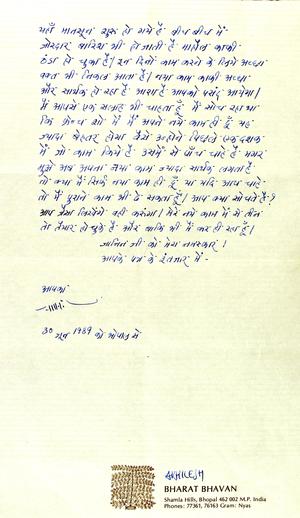 यहाँ मानसून शुरू हो गये हैं बीच बीच में
जोरदार बारिश भी हो जाती है माहौल काफी
ठंडा हो चुका है। इन दिनों काम करने के लिये अच्छा
वक्त भी निकल आता है। नया काम काफी अच्छा
और सार्थक हो रहा है आशा है आपको पसंद आयेगा।
मैं आपसे एक सलाह भी चाहता हूँ मैं सोच रहा था
कि फ्रेन्च शो में मैं अपने नये काम ही दूँ यह
ज्यादा बेहतर होगा जैसे उन्होंने पिछले एक दशक
में जो काम किये हैं उसमें से पाँच चाहे हैं मगर
मुझे अब अपना नया काम ज्यादा सार्थक लगता है
तो क्या मैं सिर्फ नया काम ही दूँ या यदि आप चाहे
तो मैं पुराने काम भी दे सकता हूँ। आप क्या सोचते हैं?
आप जैसा लिखेंगे वही करूंगा। मेरे नये काम में से तीन
तो तैयार हो चुके हैं और बाकि भी मैं कर ही रहा हूँ।
जानिन जी को मेरा नमस्कार।
आपके पत्र के इंतजार में -
आपका
30 जून 1989 को भोपाल से
AKHILESH
BHARAT BHAVAN
Shamla Hills, Bhopal 462 002 M.P. India
Phones: 77361, 76163 Gram: Nyas